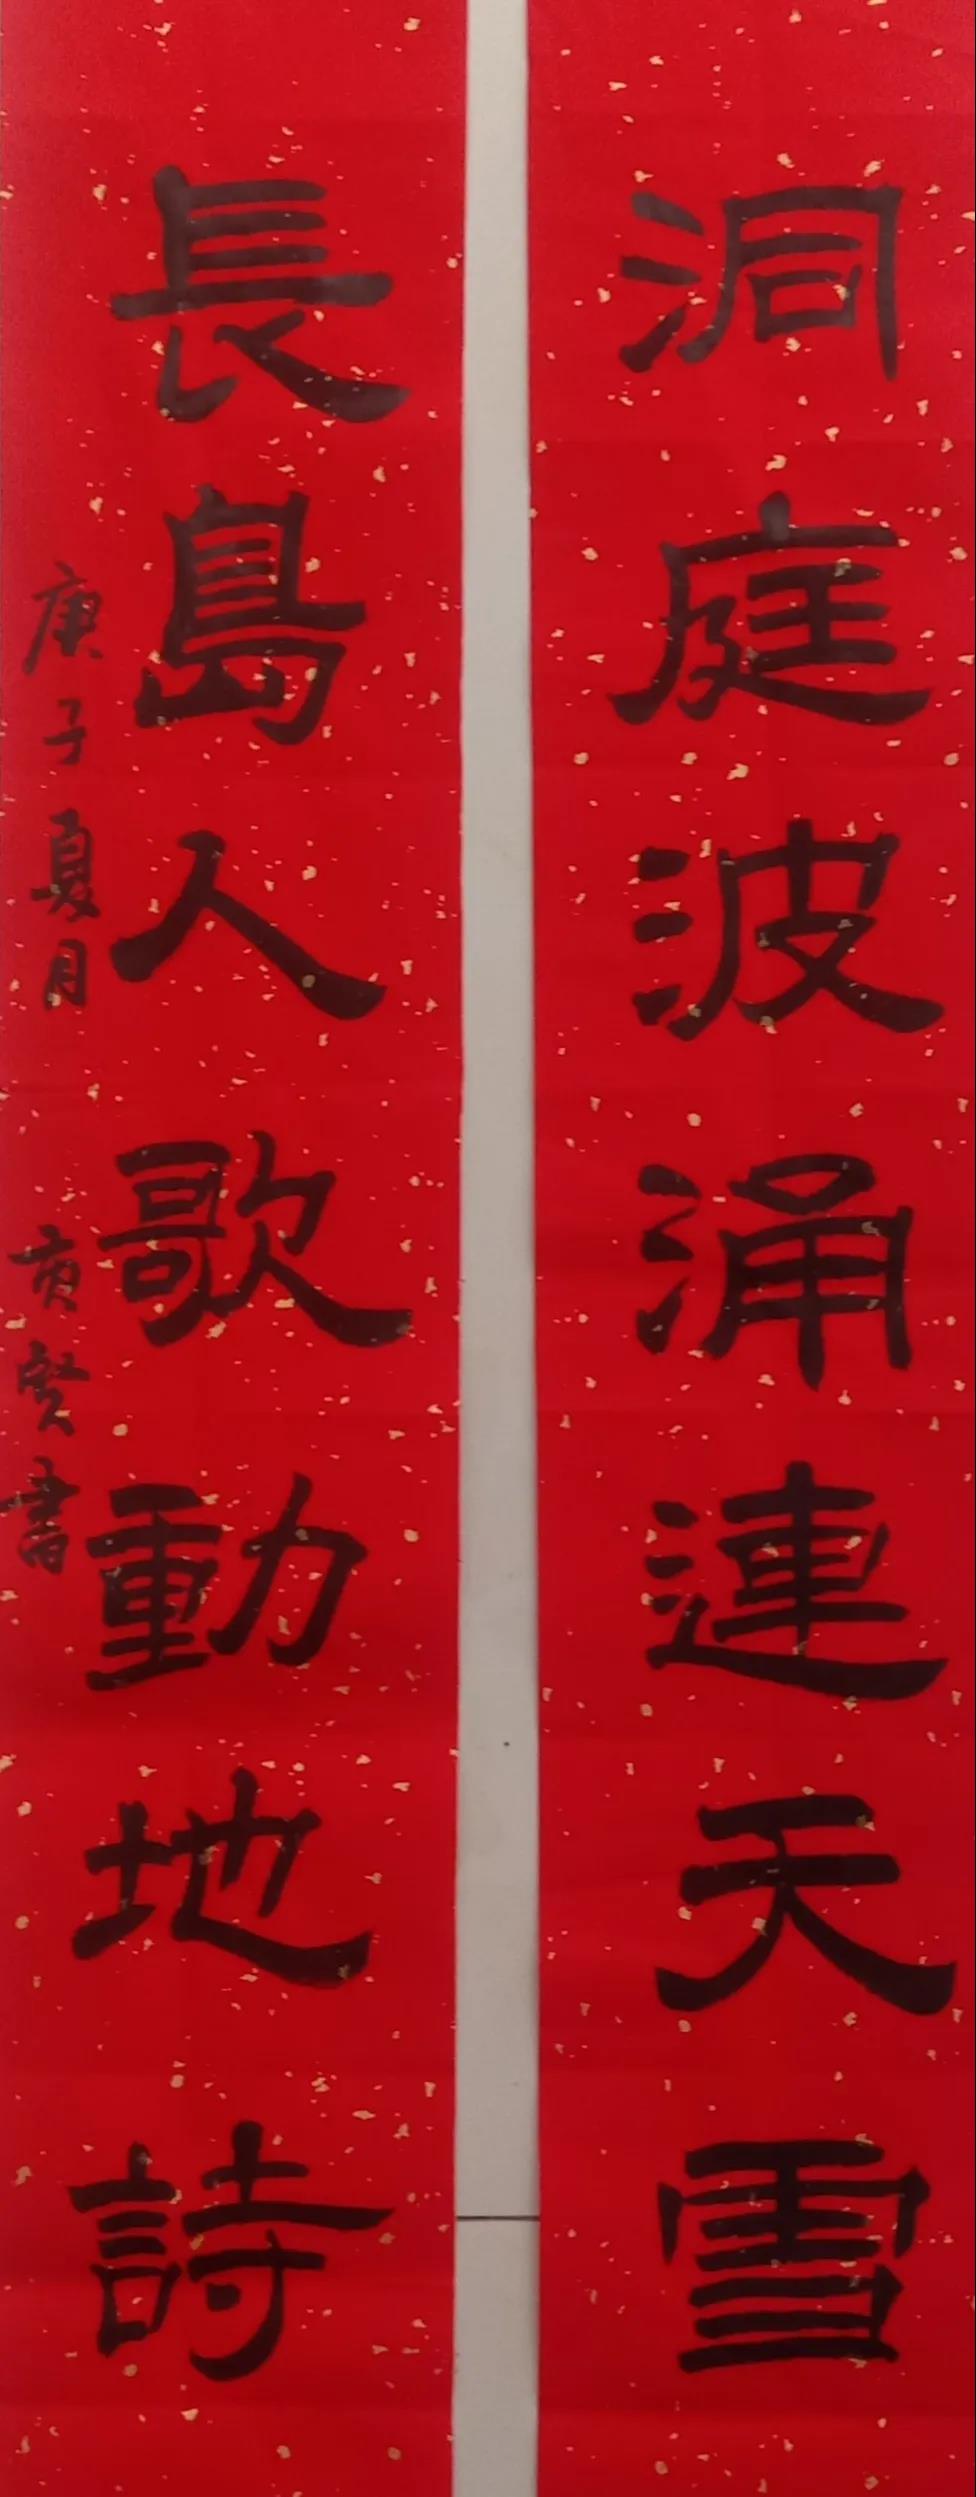 洞庭波涌連天雪
長島人歌動地詩
庚子夏月 賢書